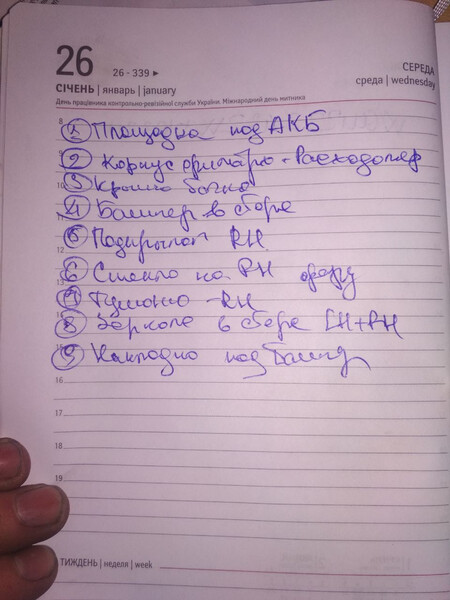 26
26 - 339 ►
СІЧЕНЬ | январь | january
СЕРЕДА
среда | wednesday
День працівника контрольно-ревізійної служби України. Міжнародний день митника
8
1 Площадка под АКБ
9
2 Корпус фильтра + Расходомер
10
3 Крышка бачка
4 Бампер в сборе
11
12
5 Подкрылок RH
6 Стекло на RH фару
13
7 Туманка - RH
8 Зеркала в сборе LH+RH
15
9 Накладка под Бампер
16
17
18
19
ТИЖДЕНЬ | неделя | week